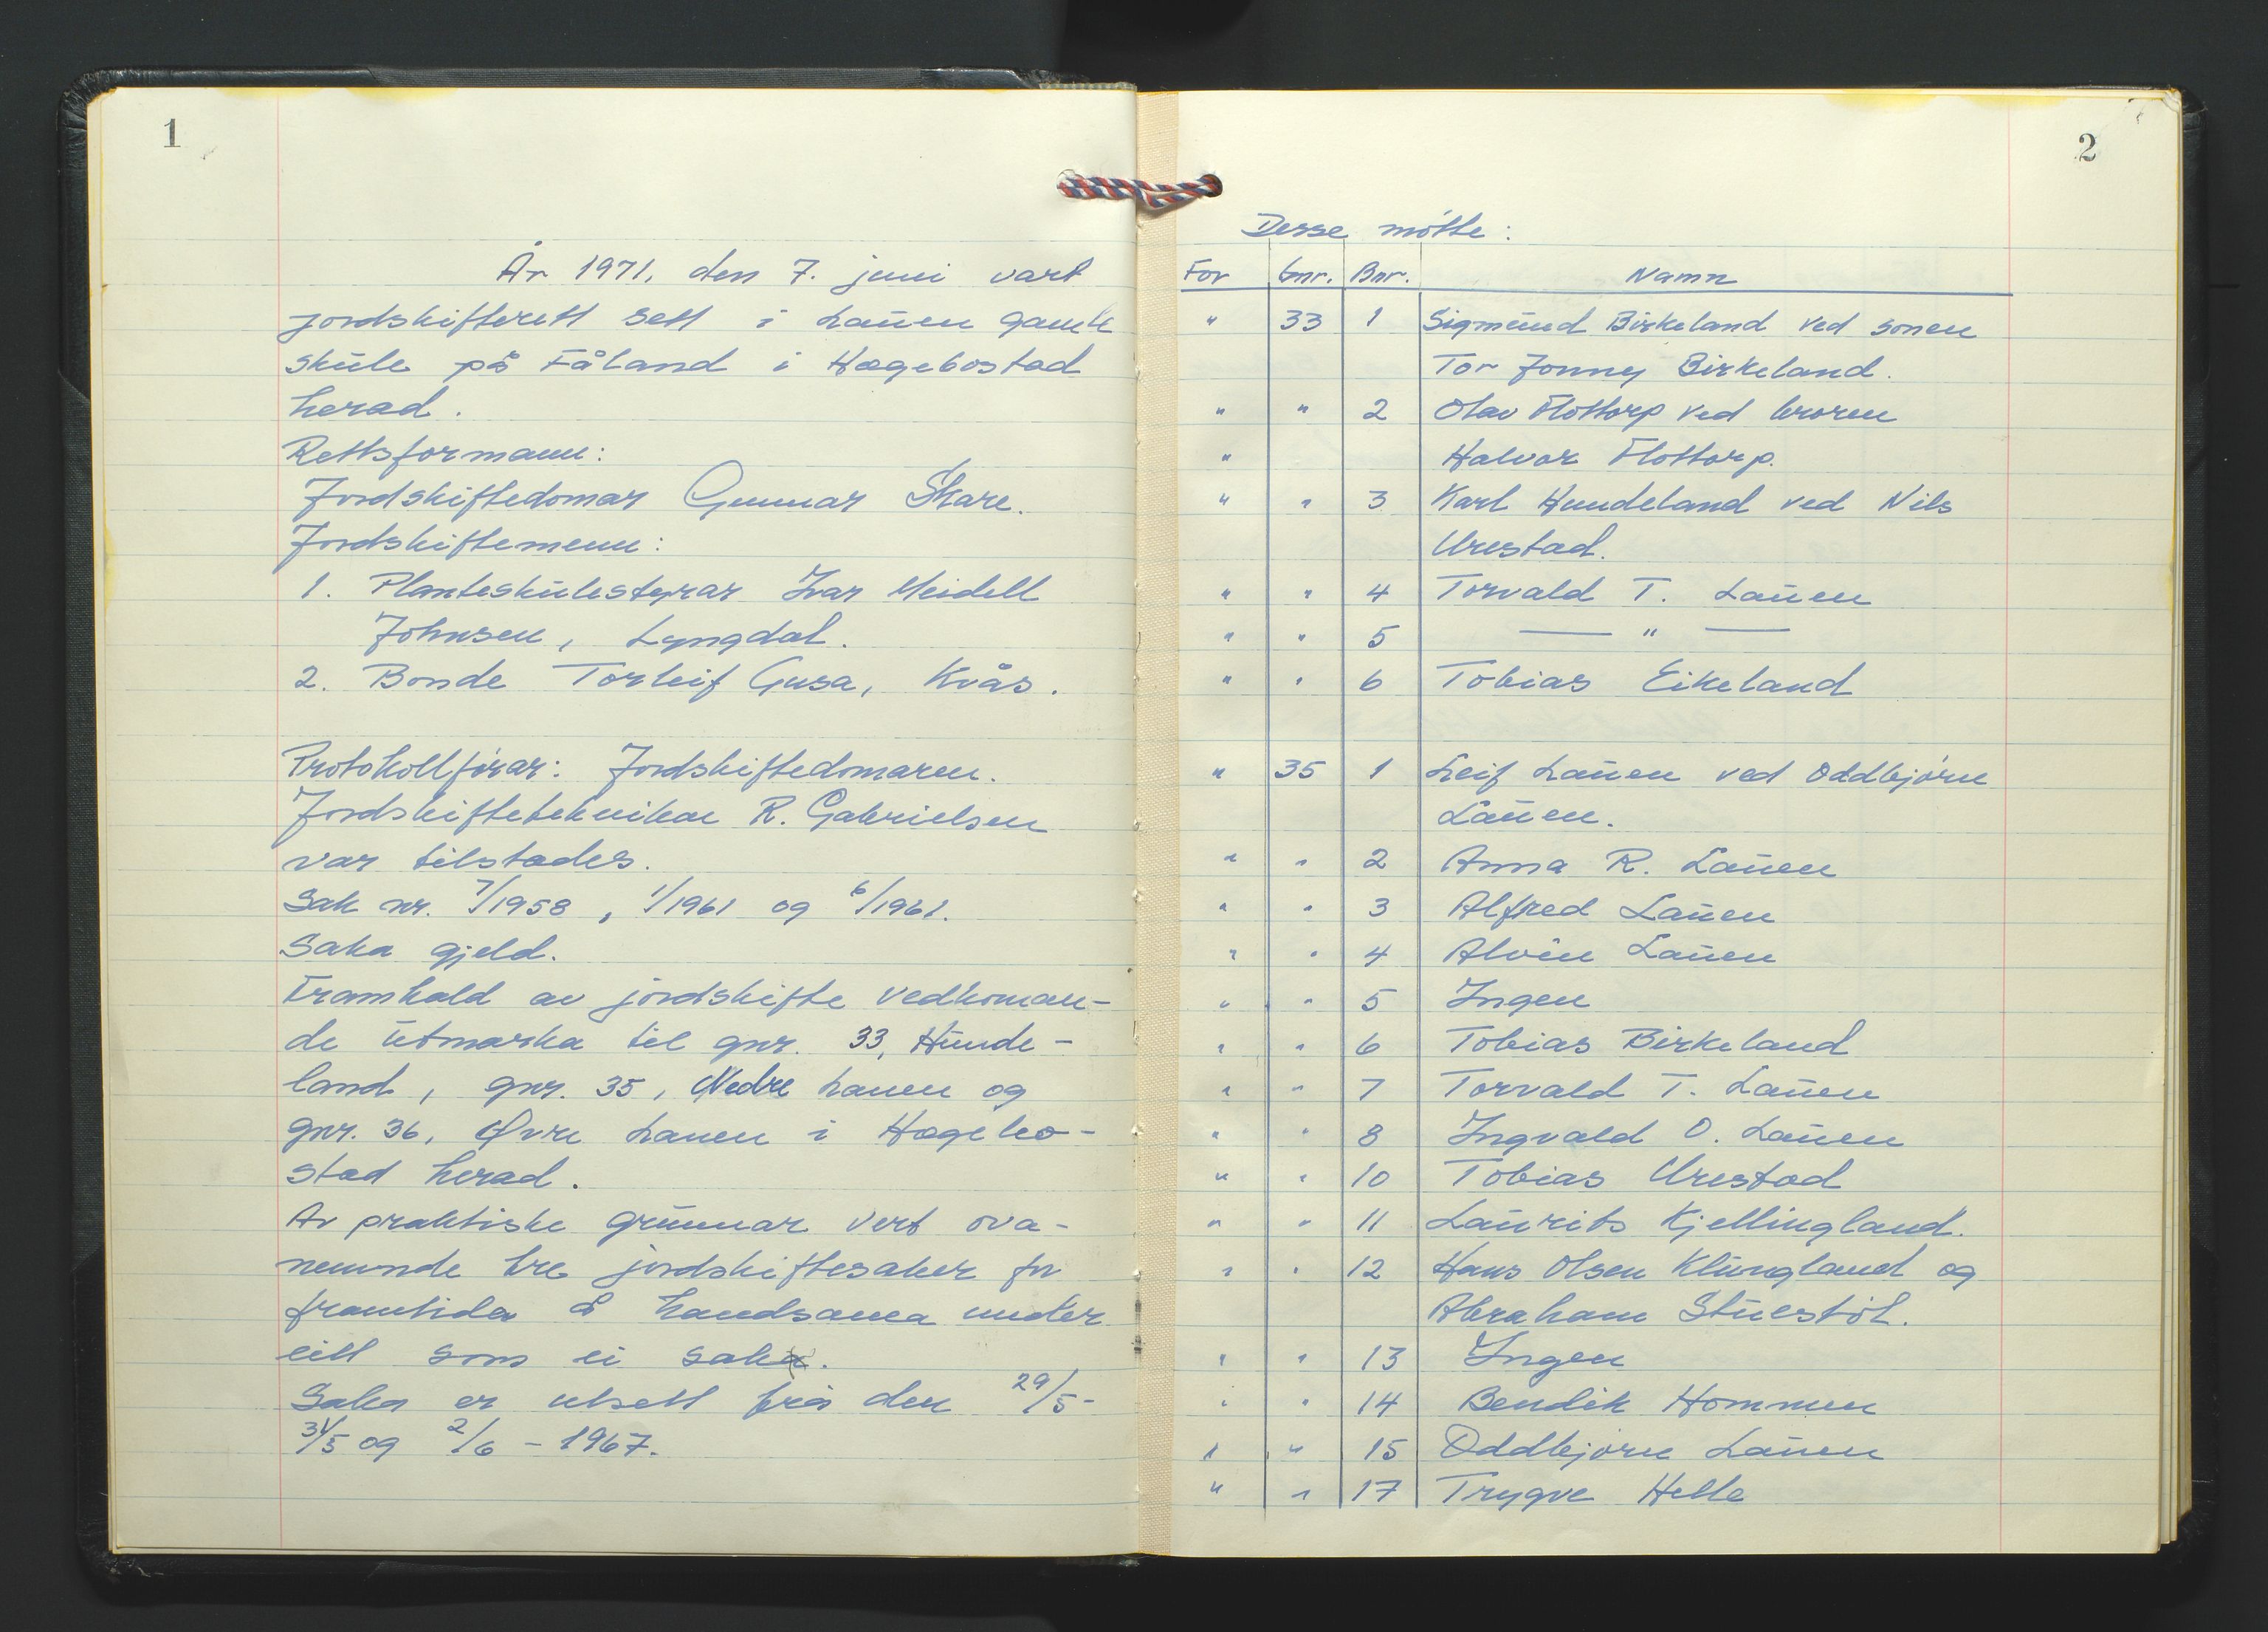 1
År 1971, den 7. juni vart
jordskifterett sett i Lauen gamle
skule på Fåland i Hægebostad
herad.
Rettsformann:
Jordskiftedomar Gunnar Skare.
Jordskiftemenn:
1. Planteskulestyrar Ivar Meidell
Johnsen, Lyngdal.
2. Bonde Torleif Gusa, Kvås.
Protokollførar: Jordskiftedomaren.
Jordskifteteknikar R. Gabrielsen
var tilstades.
Sak nr. 7/1958, 1/1961 og 6/1961.
Saka gjeld.
Framhald av jordskifte vedkoman-
de utmarka til gnr. 33, Hunde-
land, gnr. 35, Nedre Lauen og
gnr. 36, Øvre Lauen i Hægebo-
stad herad.
Av praktiske grunnar vert ova-
nemnde tre jordskiftesaker for
framtida å handsama under
eitt som ei sak.
Saka er utsett frå den 29/5-
31/5 og 2/6 - 1967.
2
Desse møtte:
For Gnr. Bnr. Namn
" 33 1 Sigmund Birkeland ved sonen
Tor Jonny Birkeland.
" " 2 Olav Flottorp ved broren
" Halvor Flottorp.
" " 3 Karl Hundeland ved Nils
Urestad.
" " 4 Torvald T. Lauen
" " 5 — " —
" " 6 Tobias Eikeland
" 35 1 Leif Lauen ved Oddbjørn
Lauen.
" " 2 Anna R. Lauen
" " 3 Alfred Lauen
" " 4 Alvin Lauen
" " 5 Ingen
" " 6 Tobias Birkeland
" " 7 Torvald T. Lauen
" " 8 Ingvald O. Lauen
" " 10 Tobias Urestad
" " 11 Laurits Kjellingland.
" " 12 Hans Olsen Klungland og
Abraham Stuestøl.
" " 13 Ingen
" " 14 Bendik Hommen
" " 15 Oddbjørn Lauen
" " 17 Trygve Helle